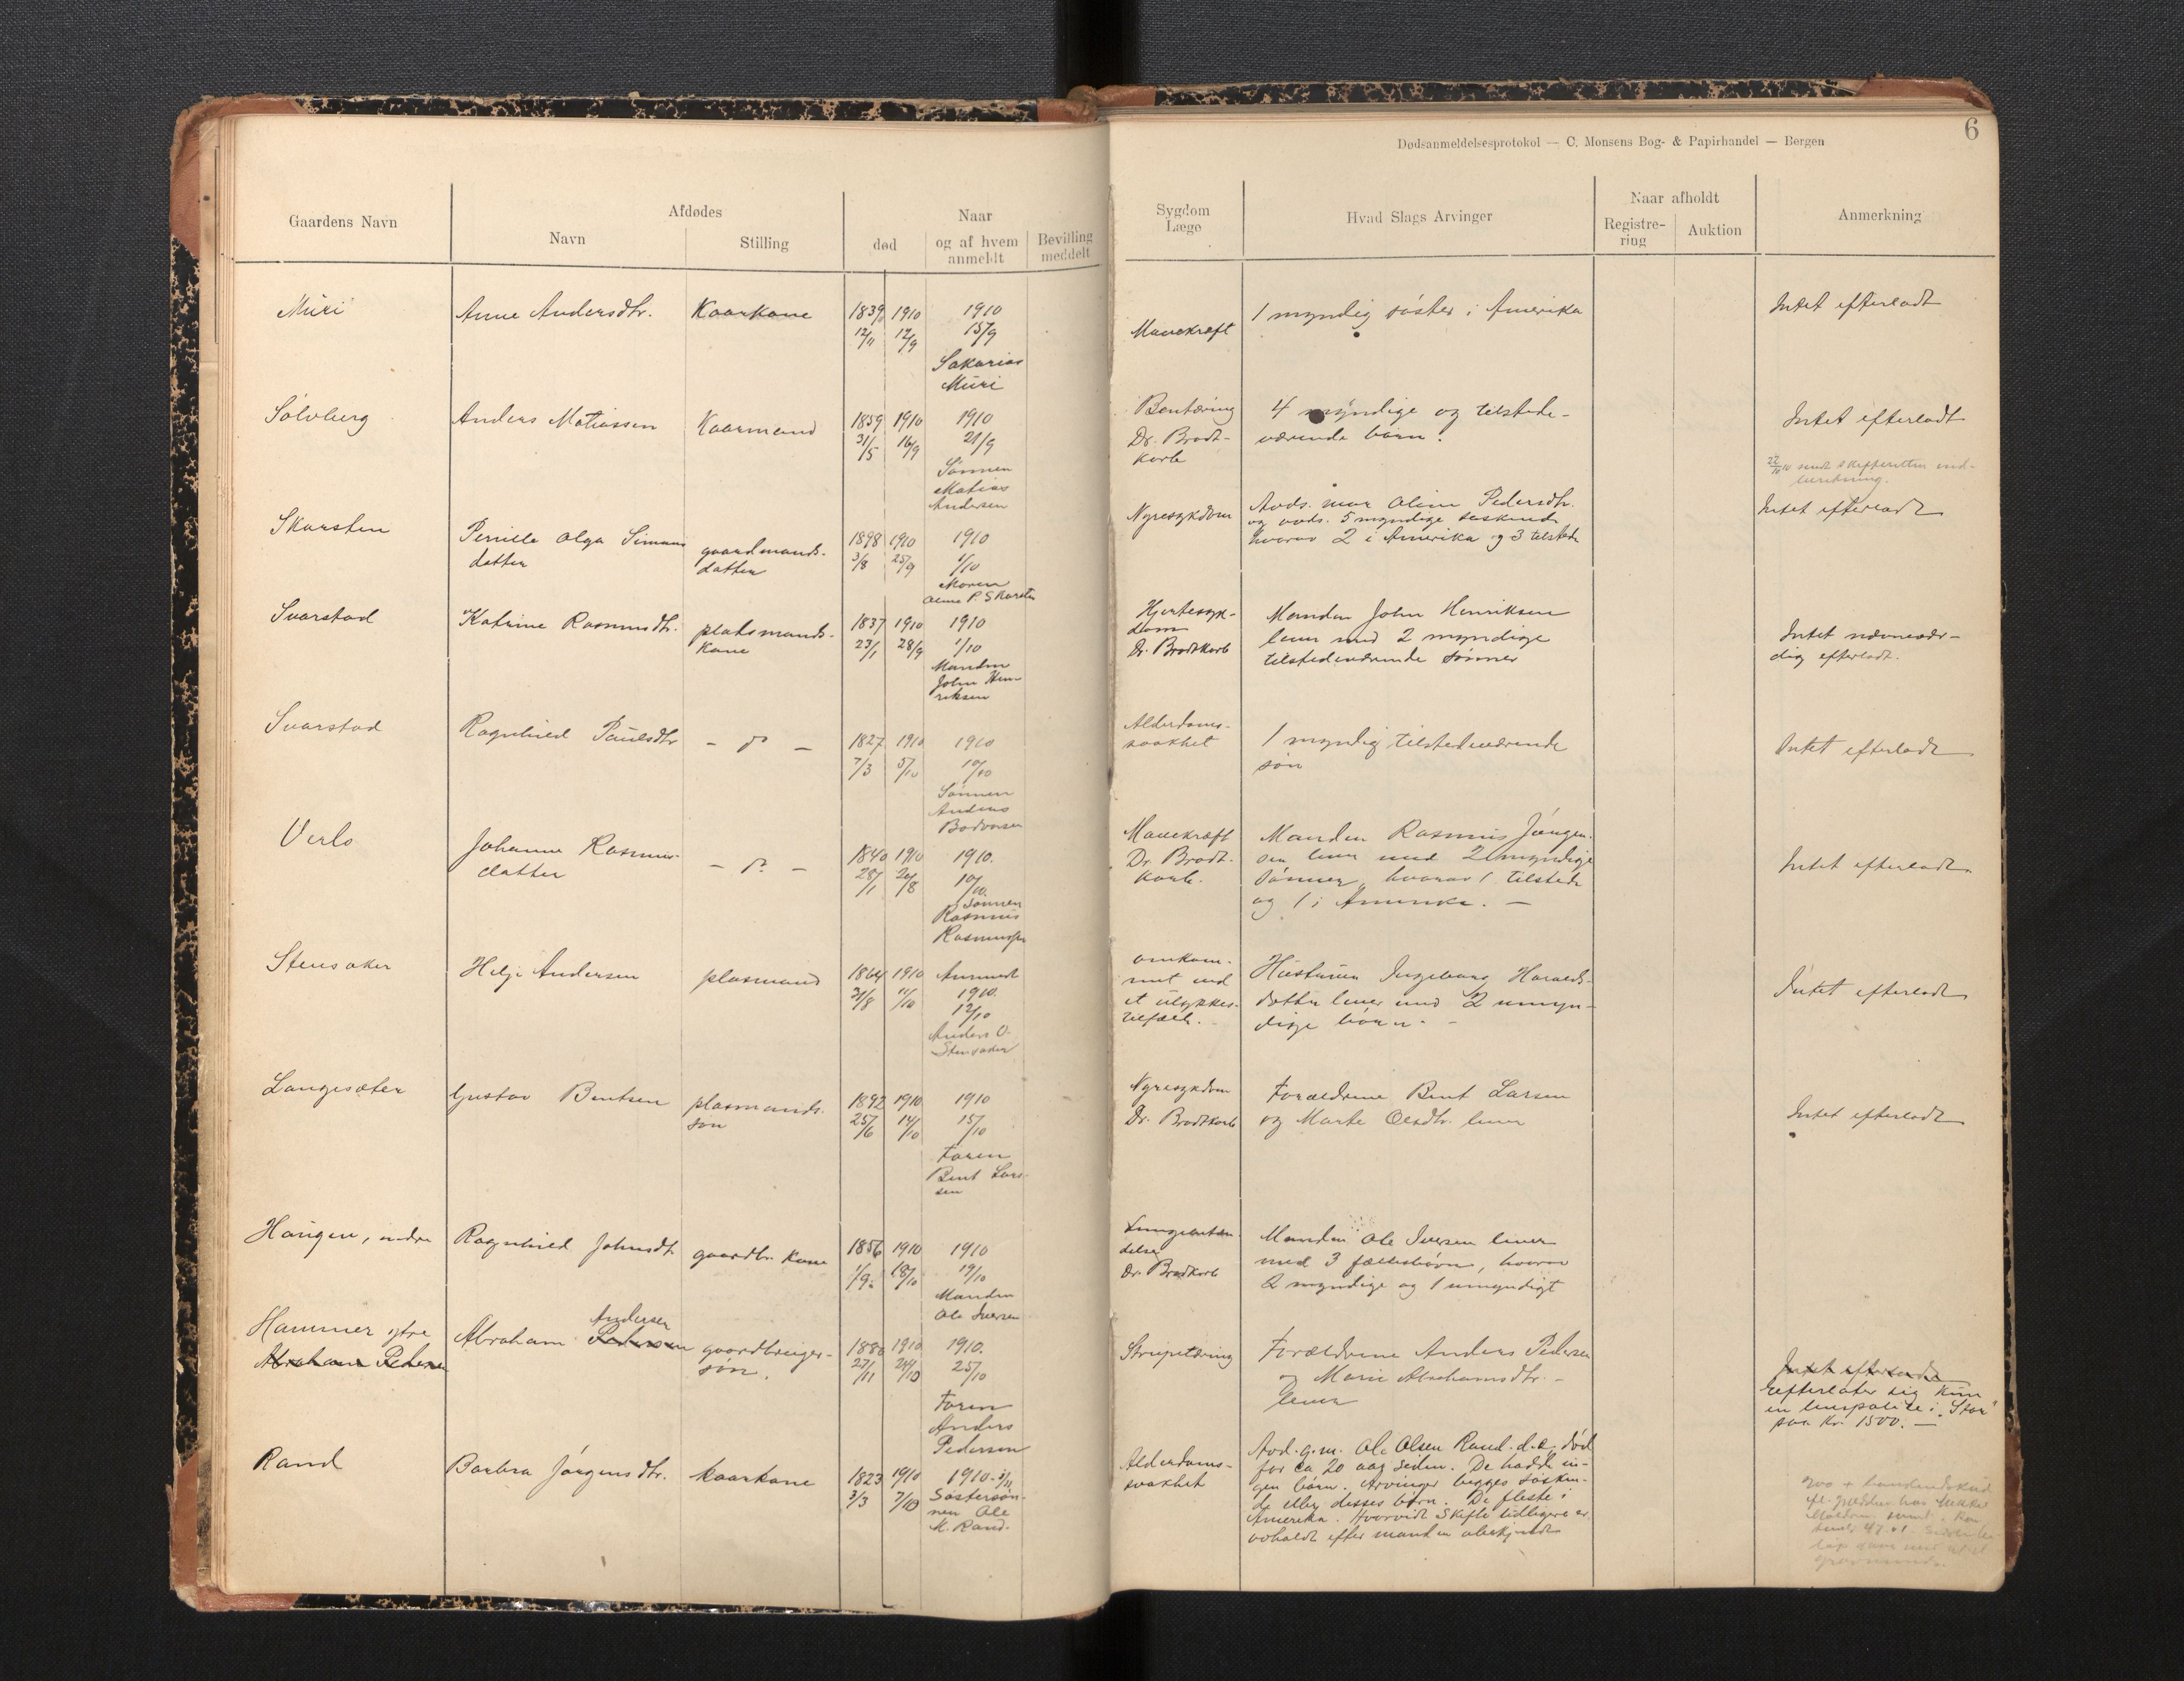 6
Dødsanmeldelsesprotokol — C. Monsens Bog- & Papirhandel — Bergen
Gaardens Navn
Afdødes
Navn
Stilling
Naar
død
og af hvem anmeldt
Bevilling meddelt
Sygdom
Læge
Hvad Slags Arvinger
Naar afholdt
Registre-
ring
Auktion
Anmerkning
Muri
Anne Andersdtr.
Kaarkone
1839 1910 1910
12/11 12/9 15/9
Sakarias
Muri
Mavekræft
1 myndig søster i Amerika
Intet efterladt
Sølvberg
Anders Matiassen
Kaarmand
1859 1910 1910
31/5 16/9 21/9
Sønnen
Matias
Andersen
Bentæring
Dr. Brodt-
korb
4 myndige og tilstede-
værende børn.
Intet efterladt
22/10 10 sendt skifteretten ind-
beretning.
Skarsten
Pernille Olga Simons
datter
gaardmands-
datter
1898 1910 1910
3/8 25/9 1/10
Moren
Oline P. Skarsten
Nyresykdom
Avds. mor Oline Pedersdtr.
og avds. 5 myndige søskende
hvorav 2 i Amerika og 3 tilstede
Intet efterladt
Svarstad
Katrine Rasmusdtr.
platsmands-
kone
1837 1910 1910
23/1 28/9 1/10
Manden
John Hen-
riksen
Hjertesyk-
dom
Dr. Brodtkorb
Manden John Henriksen
lever med 2 myndige
tilstedeværende sønner
Intet nævnevær-
dig efterladt.
Svarstad
Ragnhild Paulsdtr
- " -
1827 1910 1910
7/3 5/10 10/10
Sønnen
Anders
Bodvarsen
Alderdoms-
svakhet
1 myndig tilstedeværende
søn
Intet efterladt
Verlo
Johanne Rasmus-
datter
- " -
1840 1910 1910.
28/1 24/8 10/10.
Sønnen
Rasmus
Rasmussen
Mavekræft
Dr. Brodt-
korb.
Manden Rasmus Jørgen-
sen lever med 2 myndige
sønner, hvorav 1 tilstede
og 1 i Amerika. —
Intet efterladt
Stensaker
Helje Andersen
plasmand
1864 1910 Anmeldt
31/8 11/10 1910.
12/10
Anders O.
Stensaker
omkom-
met ved
et ulykkes-
tilfælde.
Hustruen Ingeborg Haralds-
datter lever med 2 umyn-
dige børn. -
Intet efterladt
Langesæter
Gustav Bentsen
plasmands-
søn
1892 1910 1910
25/6 14/10 15/10
Faren
Bent Lar-
sen
Nyresykdom
Dr. Brodtkorb
Forældrene Bent Larsen
og Marte Olsdtr. lever
Intet efterladt
Haugen, nedre
Ragnhild Johnsdtr
gaardbr. kone
1856 1910 1910
1/9. 18/10 19/10
Manden
Ole Iversen
Lungebetæn-
delse
Dr. Brodtkorb
Manden Ole Iversen lever
med 3 fællesbørn, hvorav
2 myndige og 1 umyndigt
Hammer ytre
Abraham Pedersen
Andersen
Abraham Pedersen
gaardbruger-
søn.
1880 1910 1910.
27/11 24/10 25/10
Faren
Anders
Pedersen
Strupetæring
Forældrene Anders Pedersen
og Marie Abrahamsdtr. -
lever
Intet efterladt
Efterlater sig kun
en livspolice i "Star"
paa Kr. 1500. —
Rand
Barbra Jørgensdtr.
kaarkone
1823 1910 1910. 3/11
3/3 7/10 Søstersøn-
nen Ole
M. Rand.
Alderdoms-
svakhet
Avd. g.m. Ole Olsen Rand. d.e. død
for ca 20 aar siden. De hadde in-
gen børn. Arvinger begges søsken-
de eller disses børn. De fleste i
Amerika. Hvorvidt skifte tidligere er
avholdt efter manden ubekjendt